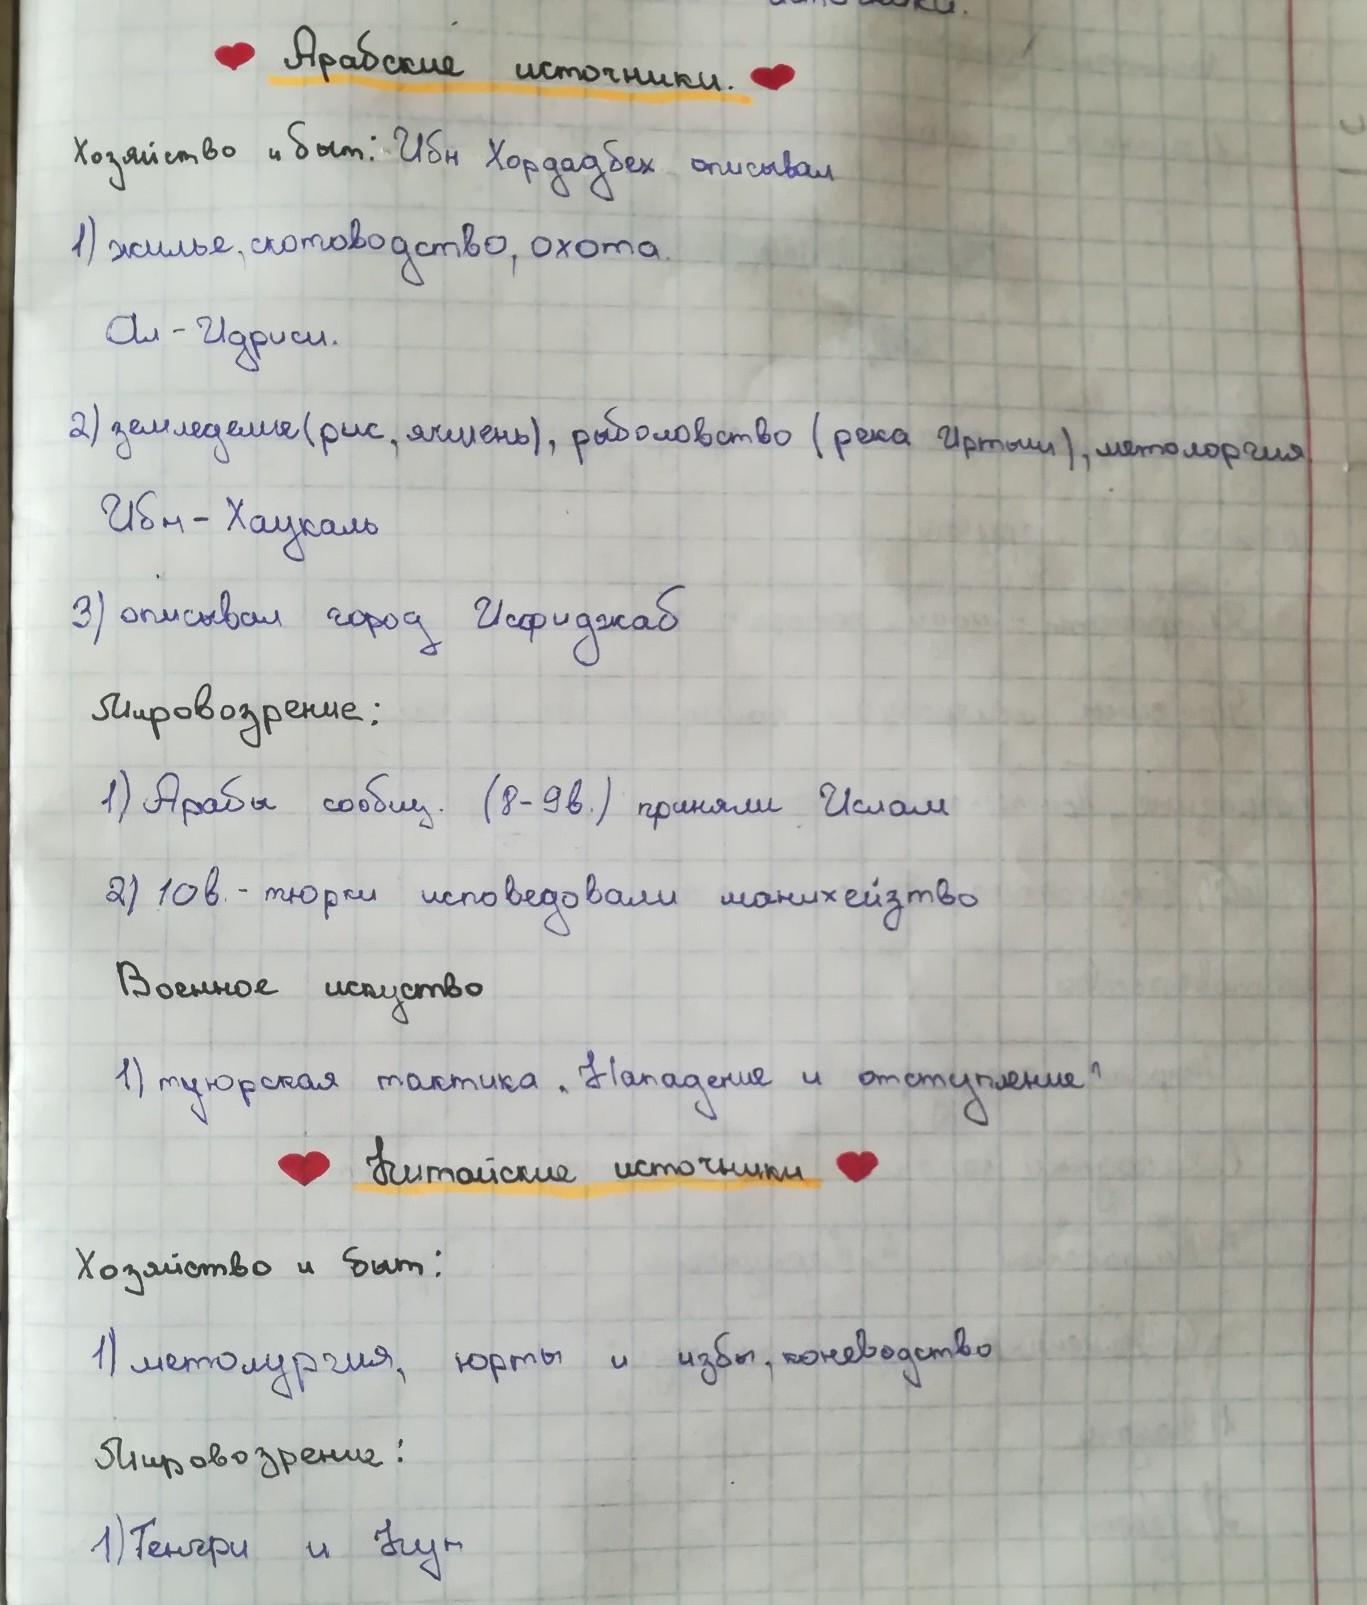 источники.
Арабские источники.
Хозяйство и быт: Ибн Хордадбех описывал
1) жилье, скотоводство, охота.
Ал-Идриси.
2) земледелие (рис, ячмень), рыболовство (река Иртыш), метолоргия
Ибн-Хаукаль
3) описывал город Исфиджаб
Мировозрение:
1) Арабы сообщ. (8-9в.) приняли Ислам
2) 10в. - тюрки исповедовали манихейзтво
Военное искуство
1) туюрская тактика „Нападение и отступление"
Китайские источники
Хозяйство и быт:
1) метолургия, юрты и избы, коневодство
Мировозрение:
1) Тенгри и Кун